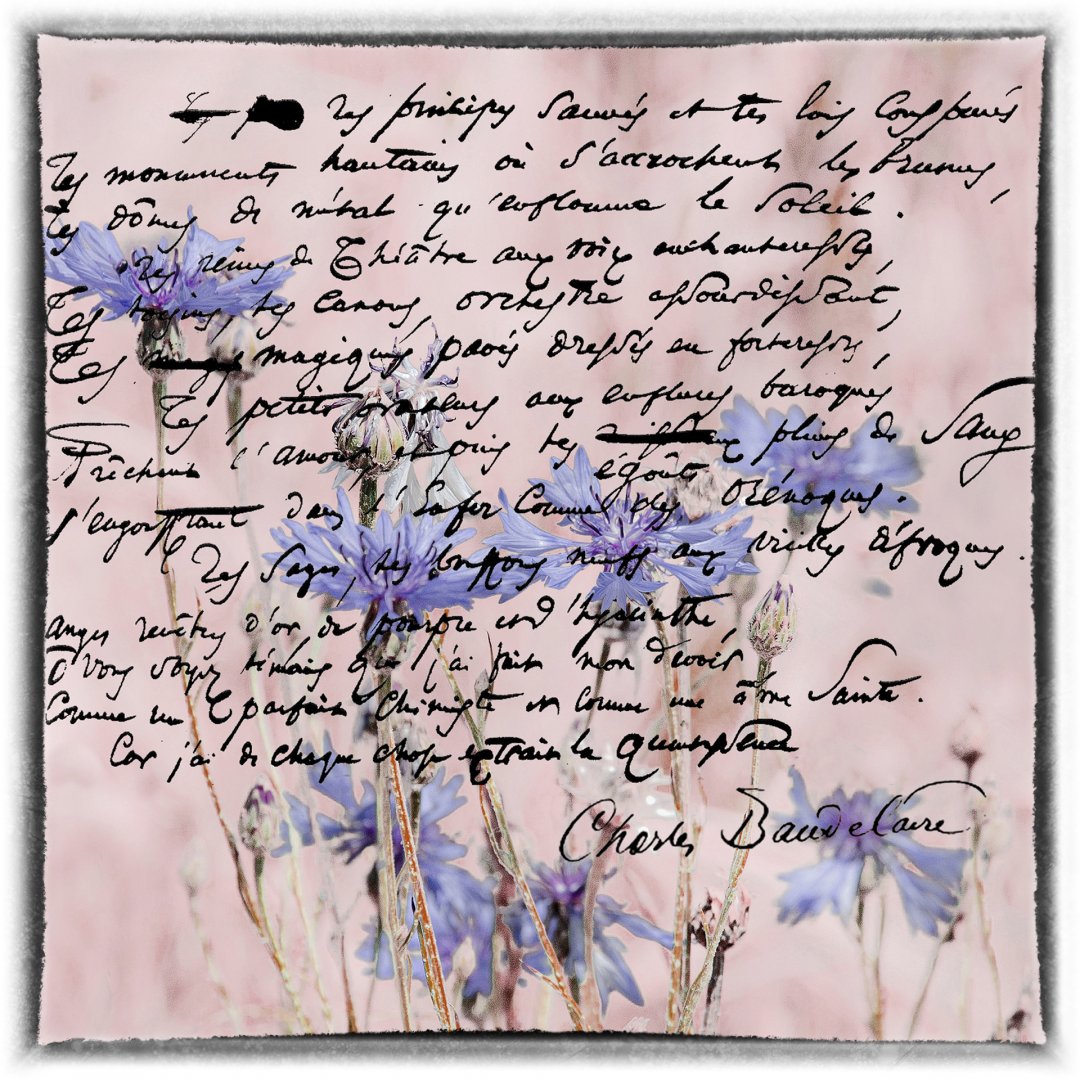 Tes principes sauvés et tes lois conspuées
Tes monuments hautains où s'accrochent les brumes,
Tes dômes de métal qu'enflamme le Soleil.
Tes reines de Théâtre aux voix enchanteresses,
Tes tocsins, tes canons, orchestre assourdissant,
Tes magiques pavés dressés en forteresses,
Tes petits orateurs aux enflures baroques
Prêchant l'amour, et puis tes égoûts pleins de Sang
s'engouffrant dans l'Enfer comme des Orénoques.
Tes Sages, tes bouffons neufs aux vieilles défroques.
anges revêtus d'or de pourpre et d'hyacinthe,
ô vous soyez témoins que j'ai fait mon devoir
Comme un parfait Chimiste et comme une âme Sainte.
Car j'ai de chaque chose extrait la quintessence
Charles Baudelaire